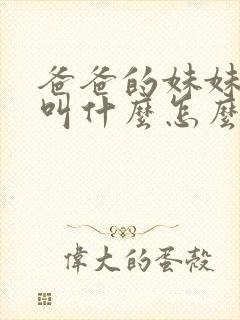 爸爸的妹妹
叫什麼怎麼
偉大的蛋殼